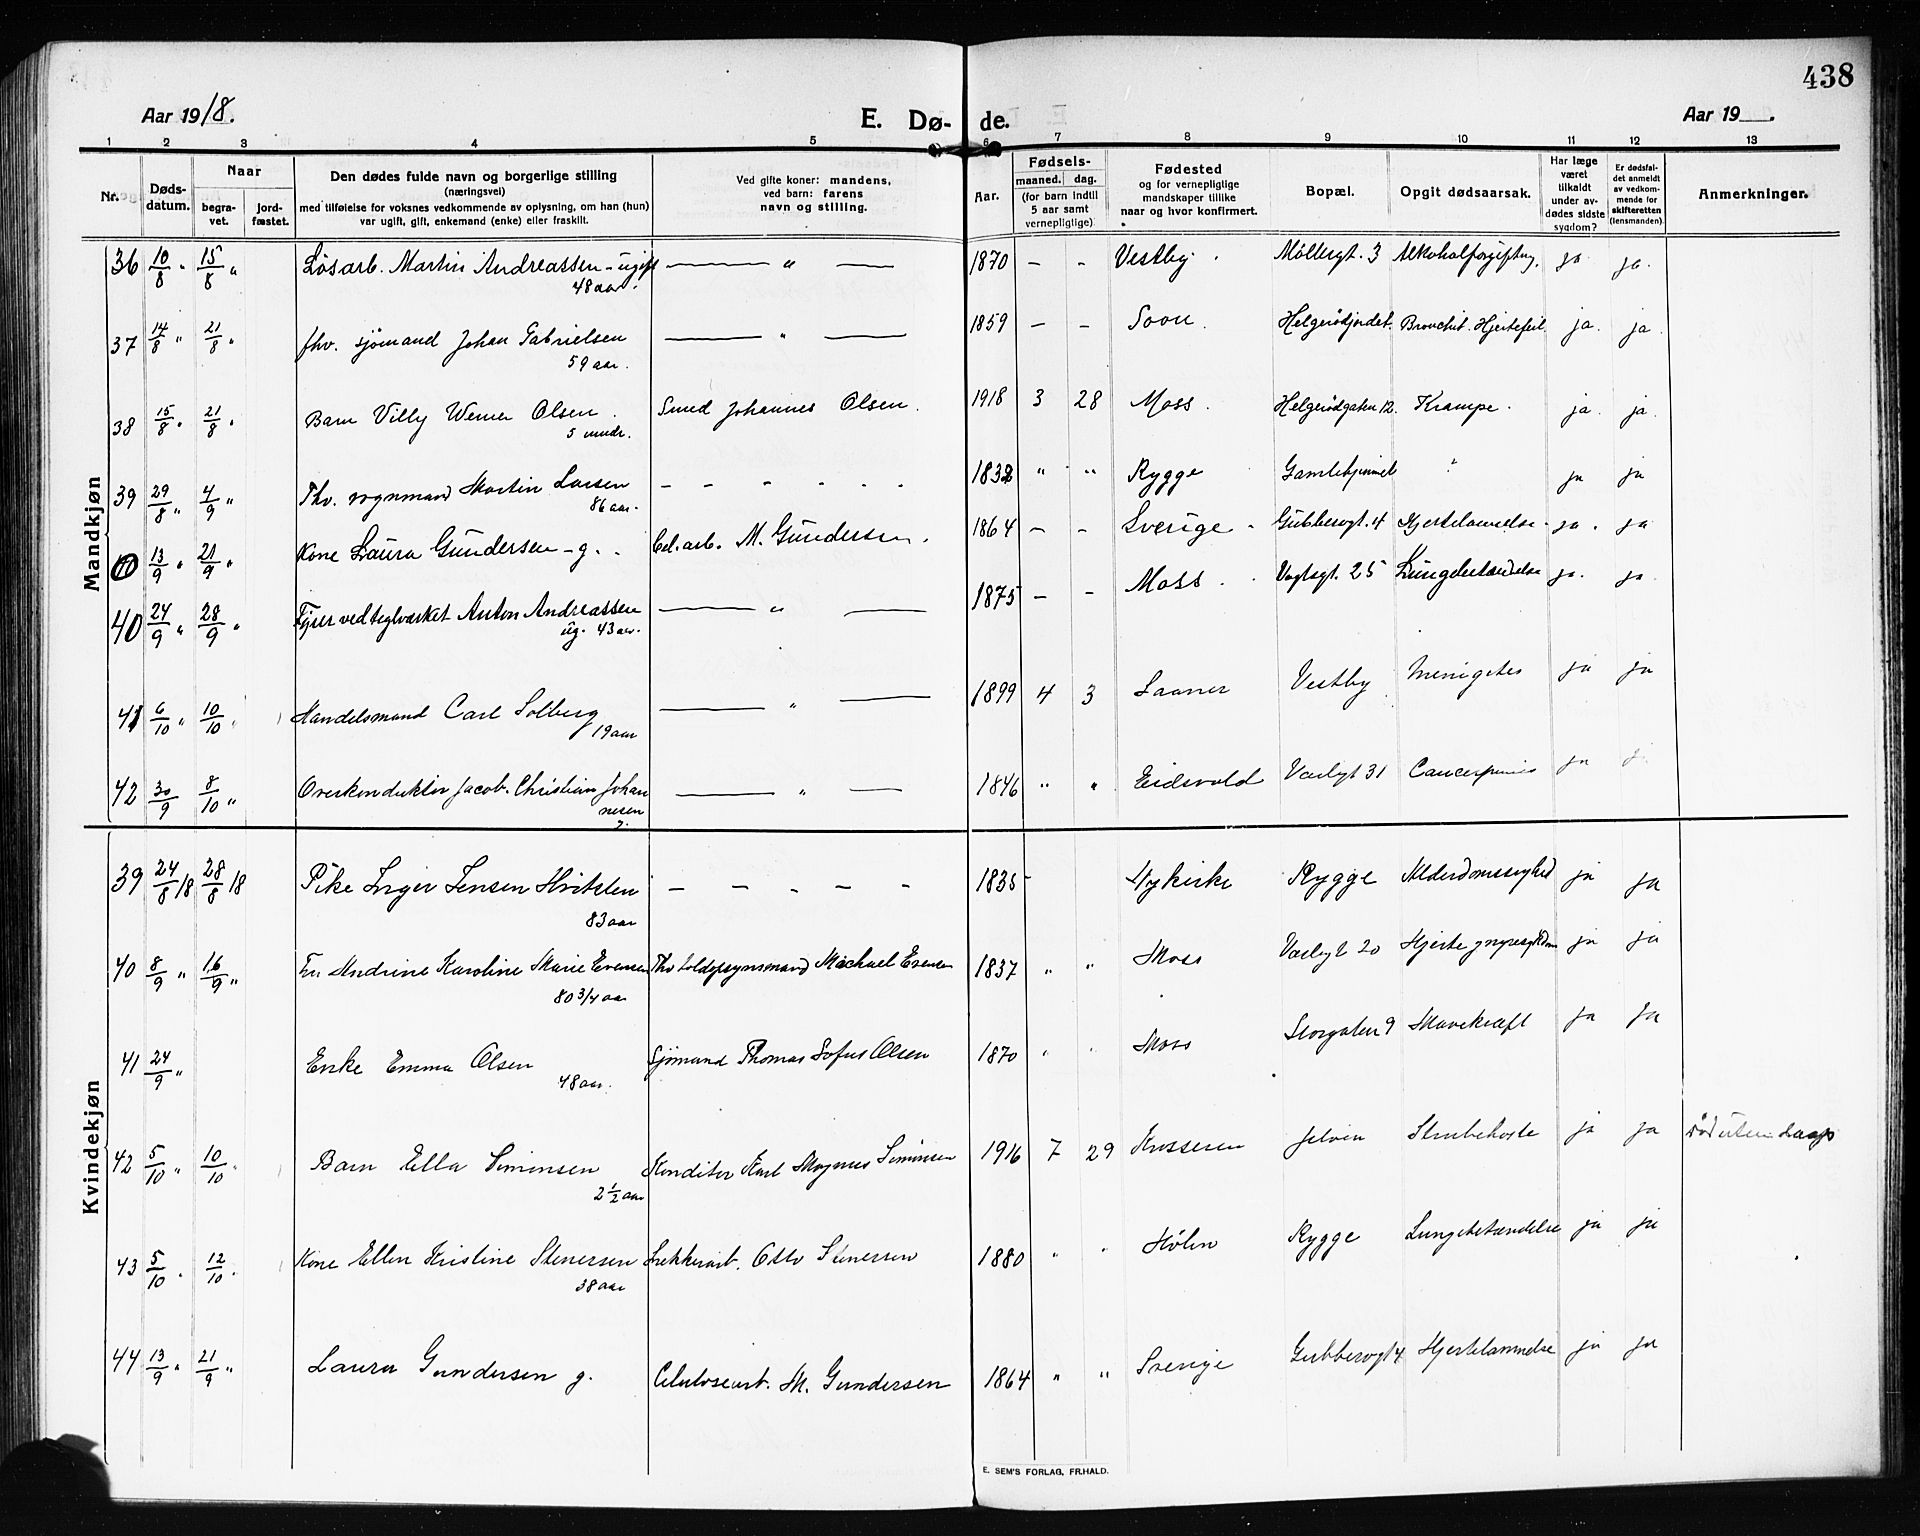 438
Aar 1918. E. Dø- de. Aar 19__.
1 2 3 4 5 6 7 8 9 10 11 12 13
Nr. Døds-datum. Naar begra-vet. jord-fæstet. Den dødes fulde navn og borgerlige stilling (næringsvei) med tilføielse for voksnes vedkommende av oplysning, om han (hun) var ugift, gift, enkemand (enke) eller fraskilt. Ved gifte koner: mandens, ved barn: farens navn og stilling. Aar. Fødsels- maaned. dag. (for barn indtil 5 aar samt vernepligtige) Fødested og for vernepligtige mandskaper tillike naar og hvor konfirmert. Bopæl. Opgit dødsaarsak. Har læge været tilkaldt under av-dødes sidste sygdom? Er dødsfal-det anmeldt av vedkom-mende for skifteretten (lensmanden). Anmerkninger.
Mandkjøn
36 10/8 " 15/8 " Løsarb. Martin Andreassen - ugift — " — 1870 – – Vestby. Møllergt. 3 Alkoholforgiftng. ja ja.
48 aar.
37 14/8 " 21/8 " fhv. sjømand Johan Gabrielsen — " — 1859 – – Soon. Helgerødjordet. Bronchit. Hjertefeil. ja. ja.
59 aar.
38 15/8 " 21/8 " Barn Villy Werner Olsen. Smed Johannes Olsen. 1918 3 28 Moss. Helgerødgaten 12. Krampe. ja. ja.
5 mndr.
39 29/8 " 4/9 " Fhv. vognmand Martin Larsen – – – – – – 1832 " " Rygge " ja ja
86 aar.
40 13/9 " 21/9 " Kone Laura Gundersen – g. Cel.arb. M. Gundersen. 1864 – – Sverige. Gubberogt. 4 Hjertelammelse. ja. ja
40 24/9 " 28/9 " Fyrer ved teglverket Anton Andreassen — " — 1875 – – Moss. Vogtsgt. 25 Lungebetændelse ja. ja.
ug. 43 aar.
41 6/10 " 10/10 Handelsmand Carl Solberg — " — 1899 4 3 Saaner Vestby Meningites ja ja
19 aar
42 30/9 8/10 " Overkonduktør Jacob Christian Johan — " — 1846 " " Eidsvold Varlygt 31 Cancer penis ja j
nesen
g.
Kvindekjøn
39 24/8 18 28/8 18 Pike Inger Jensen – – – – – 1835 Nykirke Rygge Alderdomssvghed ja ja
83 aar
40 8/9 " 16/9 " Fru Andrine Karoline Marie Evensen Fhv toldopsynsmand Michael Evensen 1837 " " Moss Varlygt 20 Hjerte g nyresykdom ja ja
80 3/4 aar
41 24/9 " Enke Emma Olsen Sjømand Thomas Sofus Olsen 1870 " " Moss Storgaten 9 Mavekræft ja ja
48 aar.
42 5/10 " 10/10 Barn Ella Simonsen Konditor Karl Magnus Simonsen 1916 7 29 Strubehoste ja ja Død uten daap
2 1/2 aar
43 5/10 . 12/10 . Kone Ellen Kristine Stenersen Otto Stenersen 1880 " " Hølen Rygge Lungebetændelse ja ja
38 aar
44 13/9 " 21/9 " Laura Gundersen g. Celuloseart. M. Gundersen 1864 " " Sverige Gubberogt 4 Hjertelammelse ja ja
E. SEM'S FORLAG, FR.HALD.